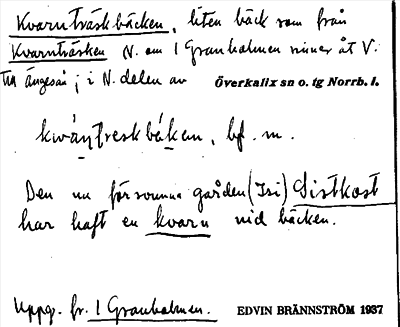 Kvarnträskbäcken, liten bäck som från
Kvarnträsken N. om 1 Granholmen rinner åt V.
till Ängesån; i N. delen av Överkalix sn o. tg Norrb. l.
bf. m.
Den nu försvunna gården (Tsi) Sistkost
har haft en kvarn vid bäcken.
Uppg. fr. 1 Granholmen. EDVIN BRÄNNSTRÖM 1937